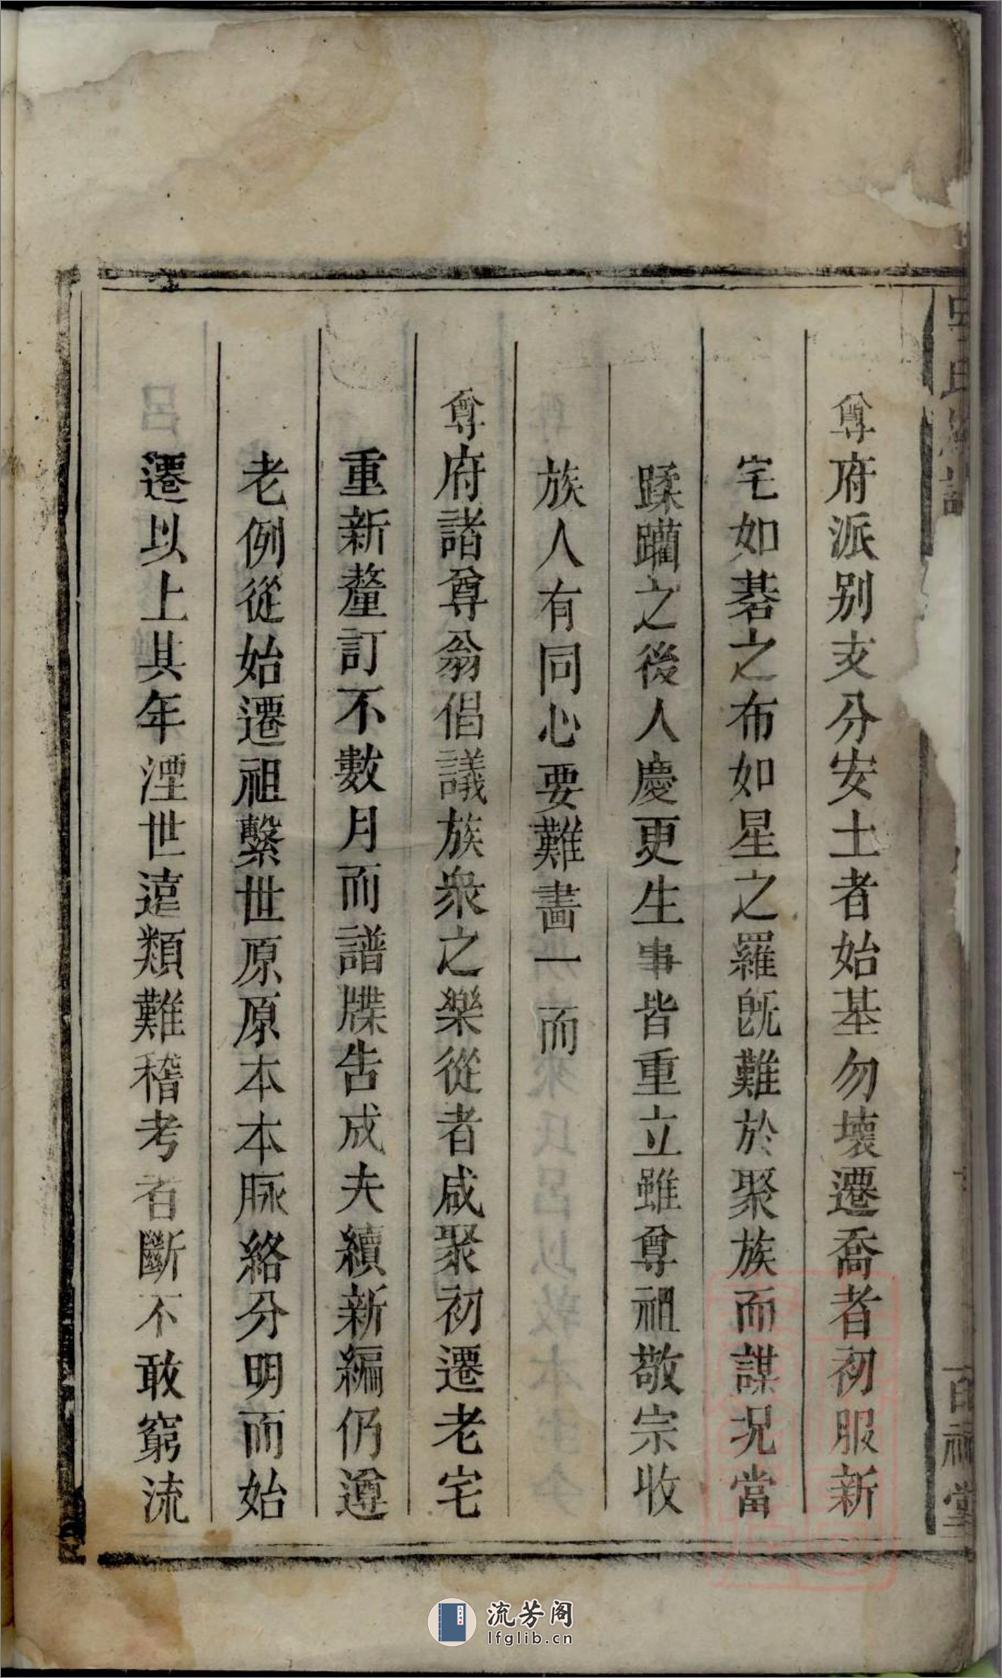 尊府派别支分安土者始基勿壞遷喬者初服新
宅如碁之布如星之羅旣難於聚族而謀况當
蹂躪之後人慶更生事皆重立雖尊祖敬宗收
族人有同心要難畫一而
尊府諸尊翁倡議族衆之樂從者咸聚初遷老宅
重新釐訂不數月而譜牒告成夫續新編仍遵
老例從始遷祖繫世原原本本脉絡分明而始
遷以上其年湮世遠類難稽考者斷不敢窮流
流芳阁
lfglib.cn